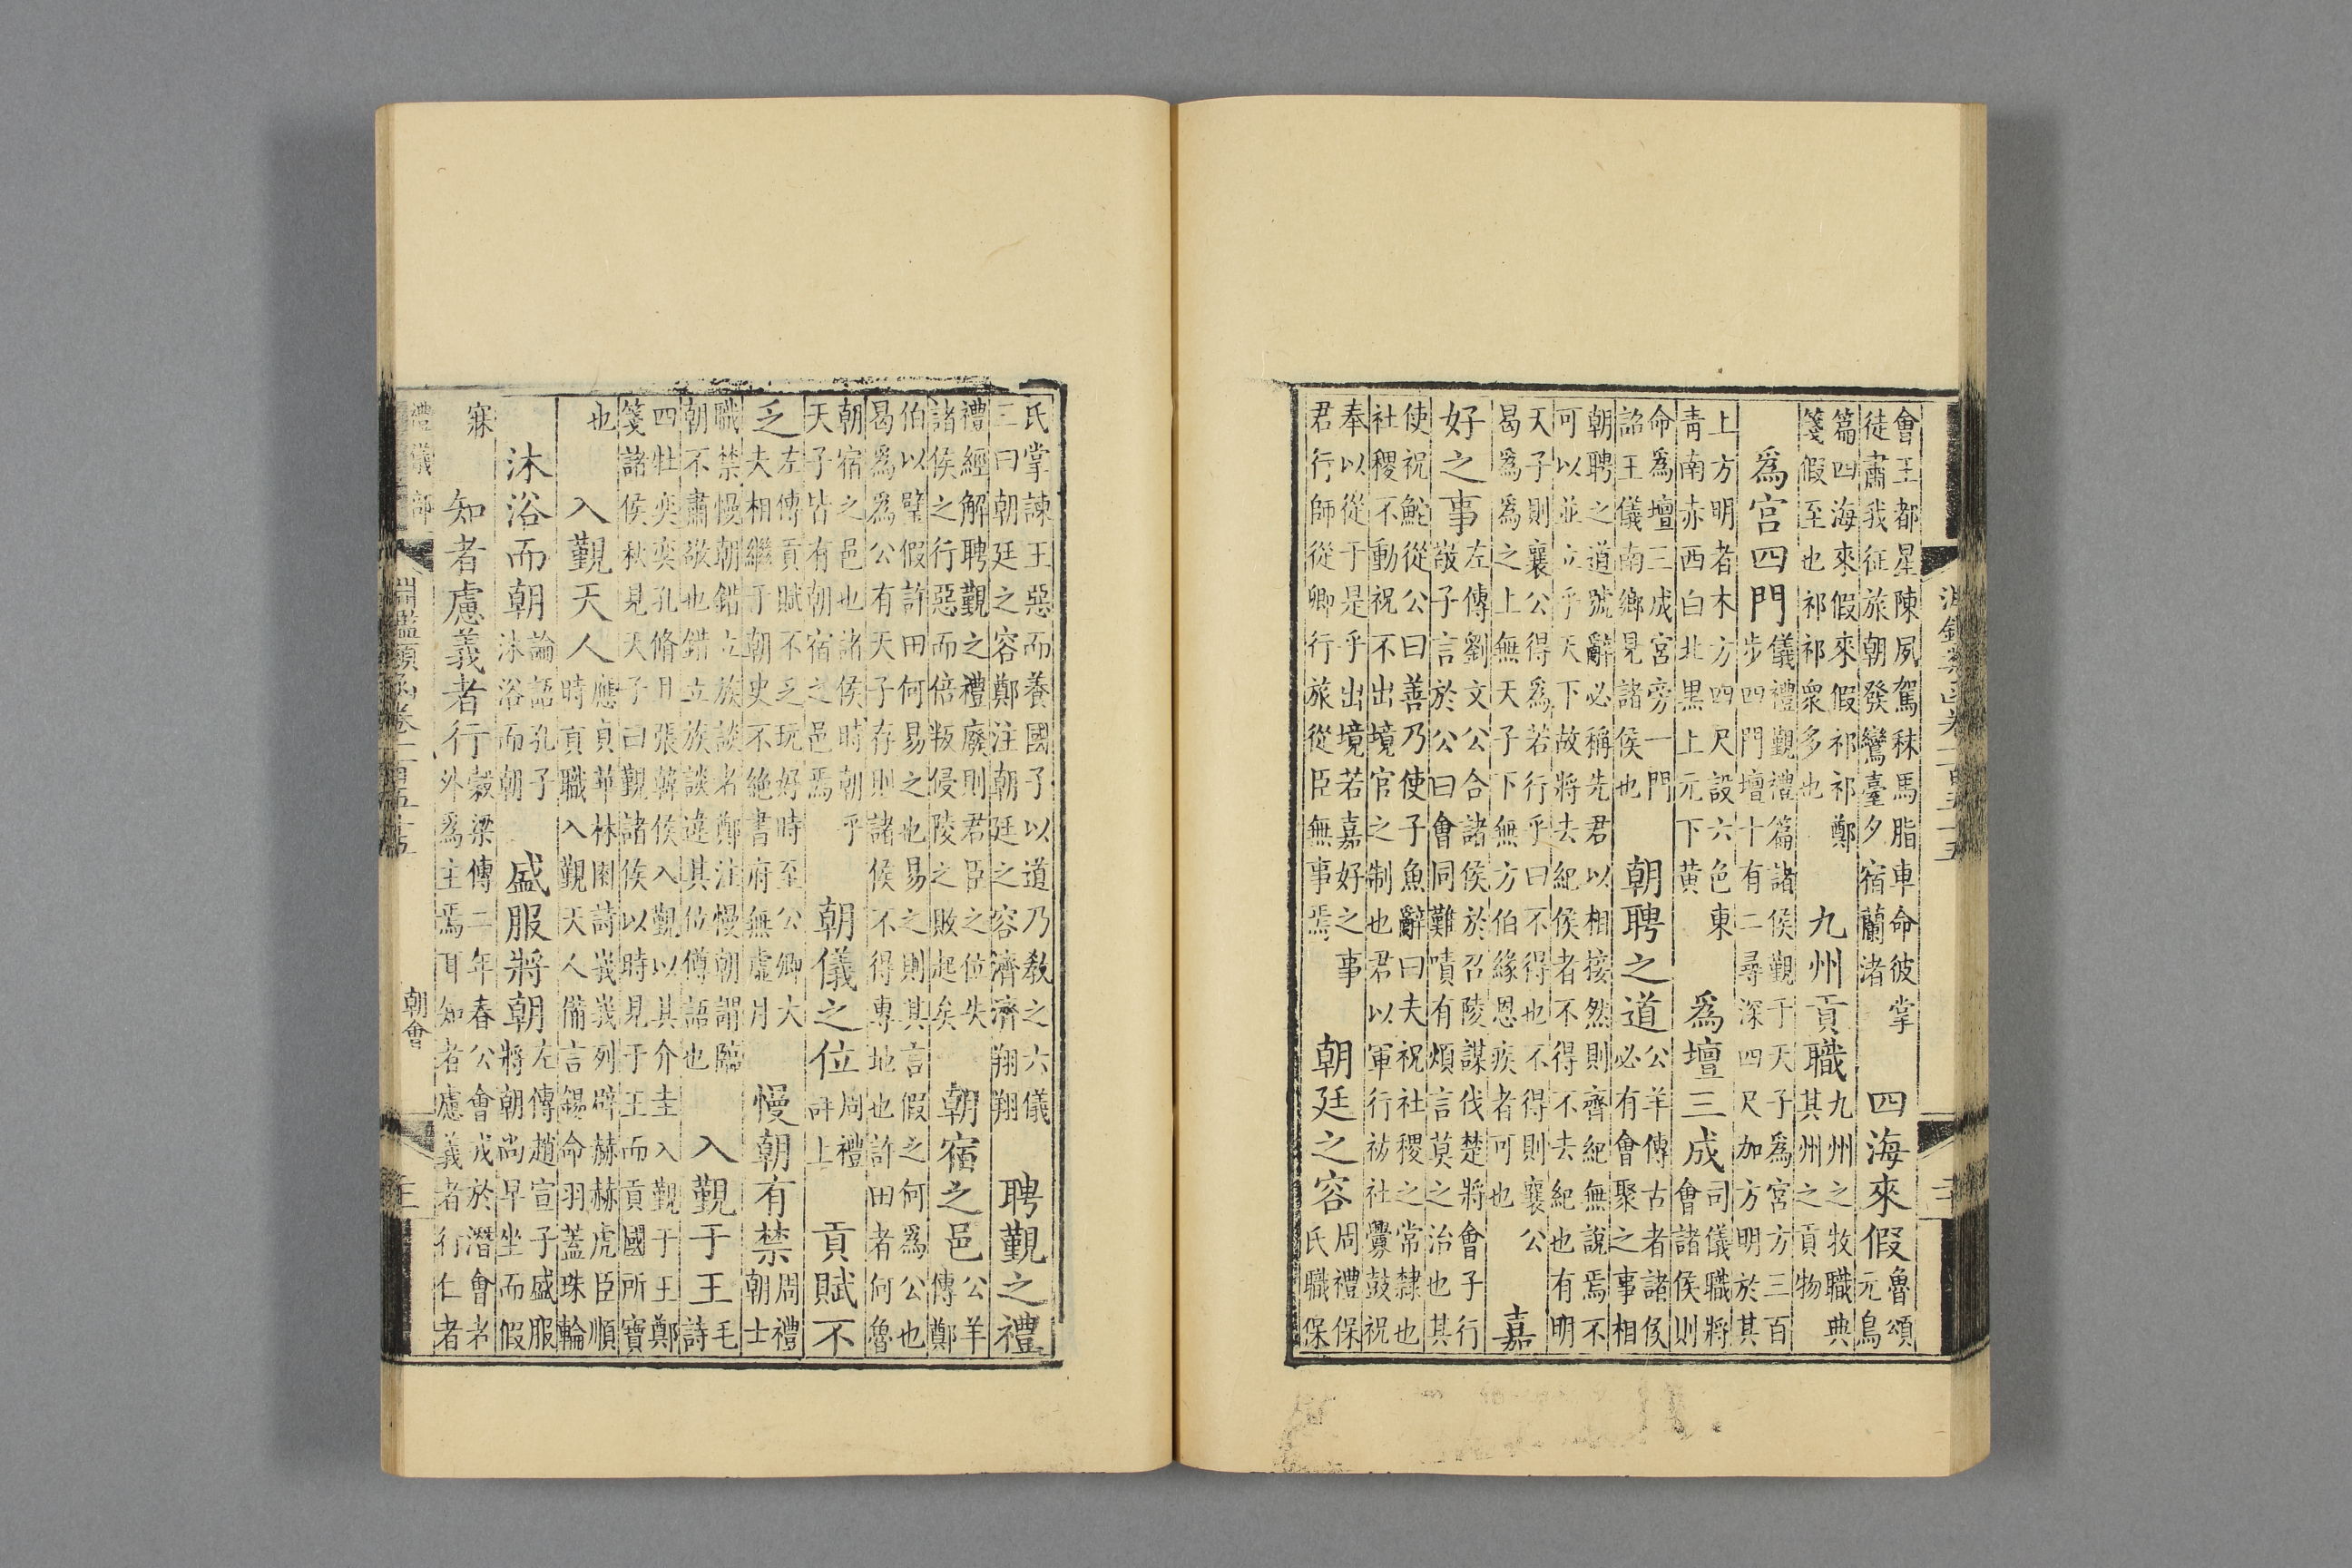 淵鑑類函卷一百五十五
會王都星陳夙駕秣馬脂車命彼掌
徒肅我征旅朝發鸞臺夕宿蘭渚
四海來假
魯頌
元鳥
篇四海來假來假祁祁鄭
箋假至也祁祁衆多也
九州貢職
九州之牧職典
其州之貢物
爲宮四門
儀禮覲禮篇諸侯覲于天子爲宮方三百
步四門壇十有二尋深四尺加方明於其
上方明者木方四尺設六色東
青南赤西白北黑上元下黃
爲壇三成
司儀職將
會諸侯則
命爲壇三成宮旁一門
詔王儀南鄉見諸侯也
朝聘之道
公羊傳古者諸侯
必有會聚之事相
朝聘之道號辭必稱先君以相接然則齊紀無說焉不
可以並立乎天下故將去紀侯者不得不去紀也有明
天子則襄公得爲若行乎曰不得也不得則襄公
曷爲爲之上無天子下無方伯緣恩疾者可也
嘉
好之事
左傳劉文公合諸侯於召陵謀伐楚將會子行
敬子言於公曰會同難嘖有煩言莫之治也其
使祝鮀從公曰善乃使子魚辭曰夫祝社稷之常隸也
社稷不動祝不出境官之制也君以軍行祓社釁鼓祝
奉以從于是乎出境若嘉好之事
君行師從卿行旅從臣無事焉
朝廷之容
周禮保
氏職保
氏掌諫王惡而養國子以道乃教之六儀
三曰朝廷之容鄭注朝廷之容濟濟翔翔
聘覲之禮
禮經解聘覲之禮廢則君臣之位失
諸侯之行惡而倍叛侵陵之敗起矣
朝宿之邑
公羊
傳鄭
伯以璧假許田何易之也易之則其言假之何爲公也
曷爲爲公有天子存則諸侯不得專地也許田者何魯
朝宿之邑也諸侯時朝乎
天子皆有朝宿之邑焉
朝儀之位
周禮
詳上
貢賦不
乏
左傳貢賦不乏玩好時至公卿大
夫相繼于朝史不絕書府無虛月
慢朝有禁
周禮
朝士
職禁慢朝錯立族談者鄭注慢朝謂臨
朝不肅敬也錯立族談違其位僔語也
入覲于王
毛
詩
四牡奕奕孔脩且張韓侯入覲以其介圭入覲于王鄭
箋諸侯秋見天子曰覲諸侯以時見于王而貢國所寶
也
入覲天人
應貞華林園詩峩峩列辟赫赫虎臣順
時貢職入覲天人備言錫命羽蓋珠輪
沐浴而朝
論語孔子
沐浴而朝
盛服將朝
左傳趙宣子盛服
將朝尚早坐而假
寐
知者慮義者行
榖梁傳二年春公會戎於潛會者
外爲主焉耳知者慮義者行仁者
禮儀部
淵鑑類函卷一百五十五
朝會